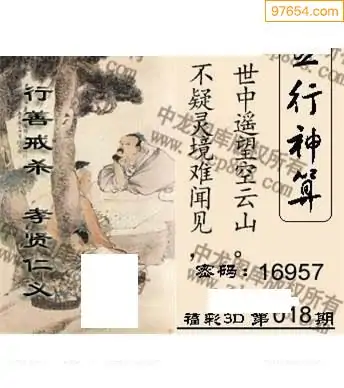 97654.com
行善戒杀 孝贤仁义
行神算
世中遥望空云山。
不疑灵境难闻见，
密码：16957
福彩3D 第018期